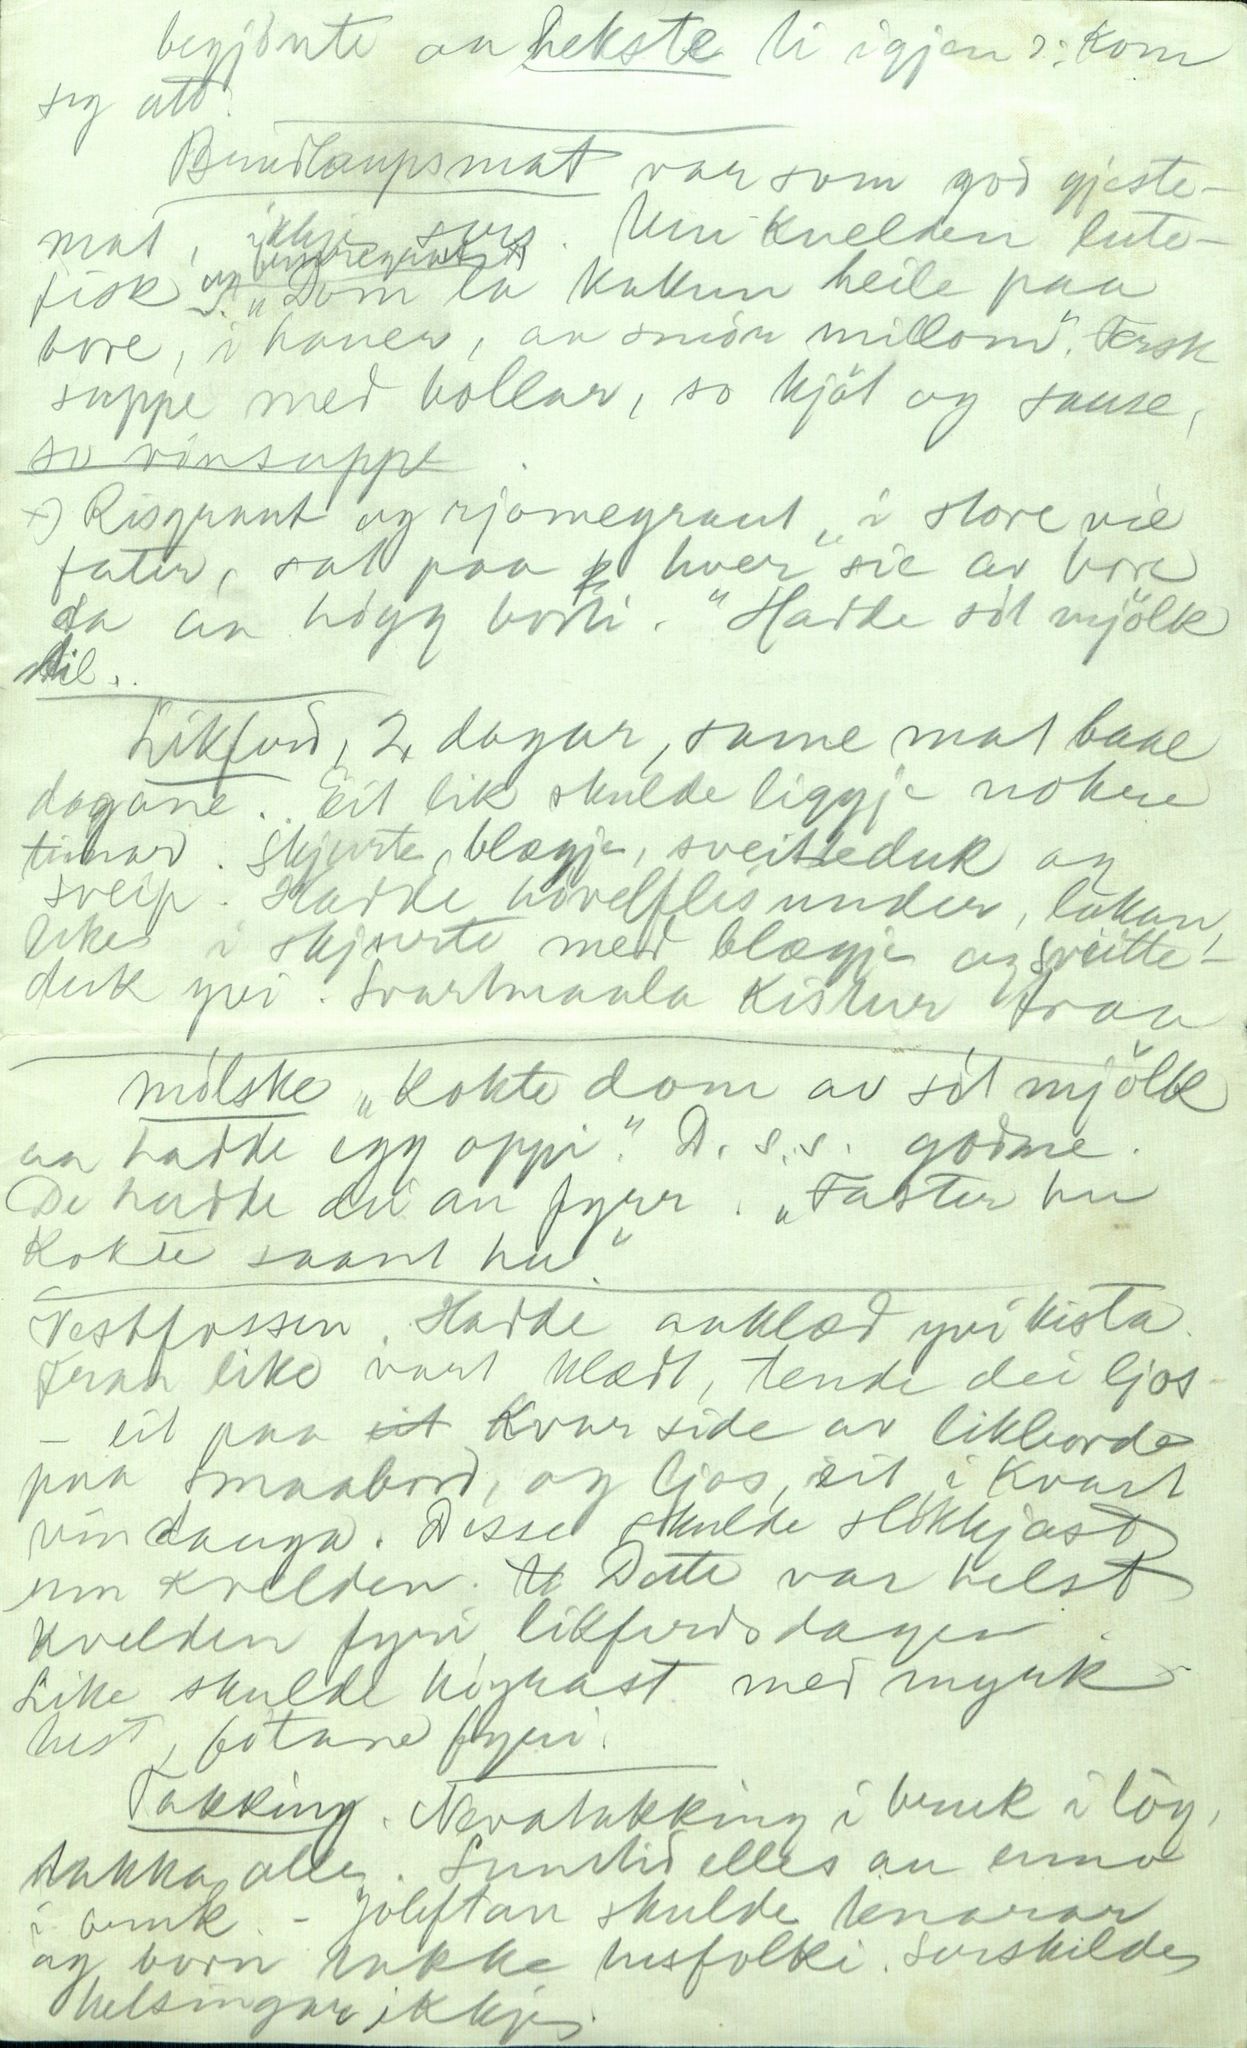 begjönte an hekste ti igjen ɔ: kom
seg att.
Brudlaupsmat var som god gjeste-
mat, ikkje surs. Um kvelden lute-
fisk og "Dom la kakun heile paa
bore, i hauer, an smör millom". Fersk
suppe med bollar, so kjöt og sause,
so vinsuppe
x) Risgraut og rjomegraut "i store vie
fater, sat paa hver sie av bore
da an högg borti." Hadde söt mjölk
til.
Likferd, 2 dagar, same mat baae
dagane. Eit lik skulde liggje nokre
timar. Skjurte, blægje, sveitteduk og
sveip. Hadde hövelflis under, lakan,
like i skjurte med blægje og sveitte-
duk yvi. Svartmaala kistur fraa
mölske "Kokte dom av söt mjölk
an hadde egg oppi." D. s. s. godme.
De hadde dei an fyrr. "Faster hu
kokte saant hu."
Vestfossen. Hadde aaklæd yvi kista.
Fraa like vart klædt, tende dei ljos
- eit paa eit kvar side av likborde
paa smaabord, og ljos, eit i kvart
vindauga. Desse skulde slökkjast
um kvelden. Dette var helst
kvelden fyri likferdsdagen.
Like skulde köyrast med myrk
hest, fötane fyri.
Takking. Nevatakking i bruk i lög,
takka alle. Sumstid elles an enno
i bruk. - Joleftan skulde tenarar
og born takke husfolki. Serskilde
helsingar ikkje.